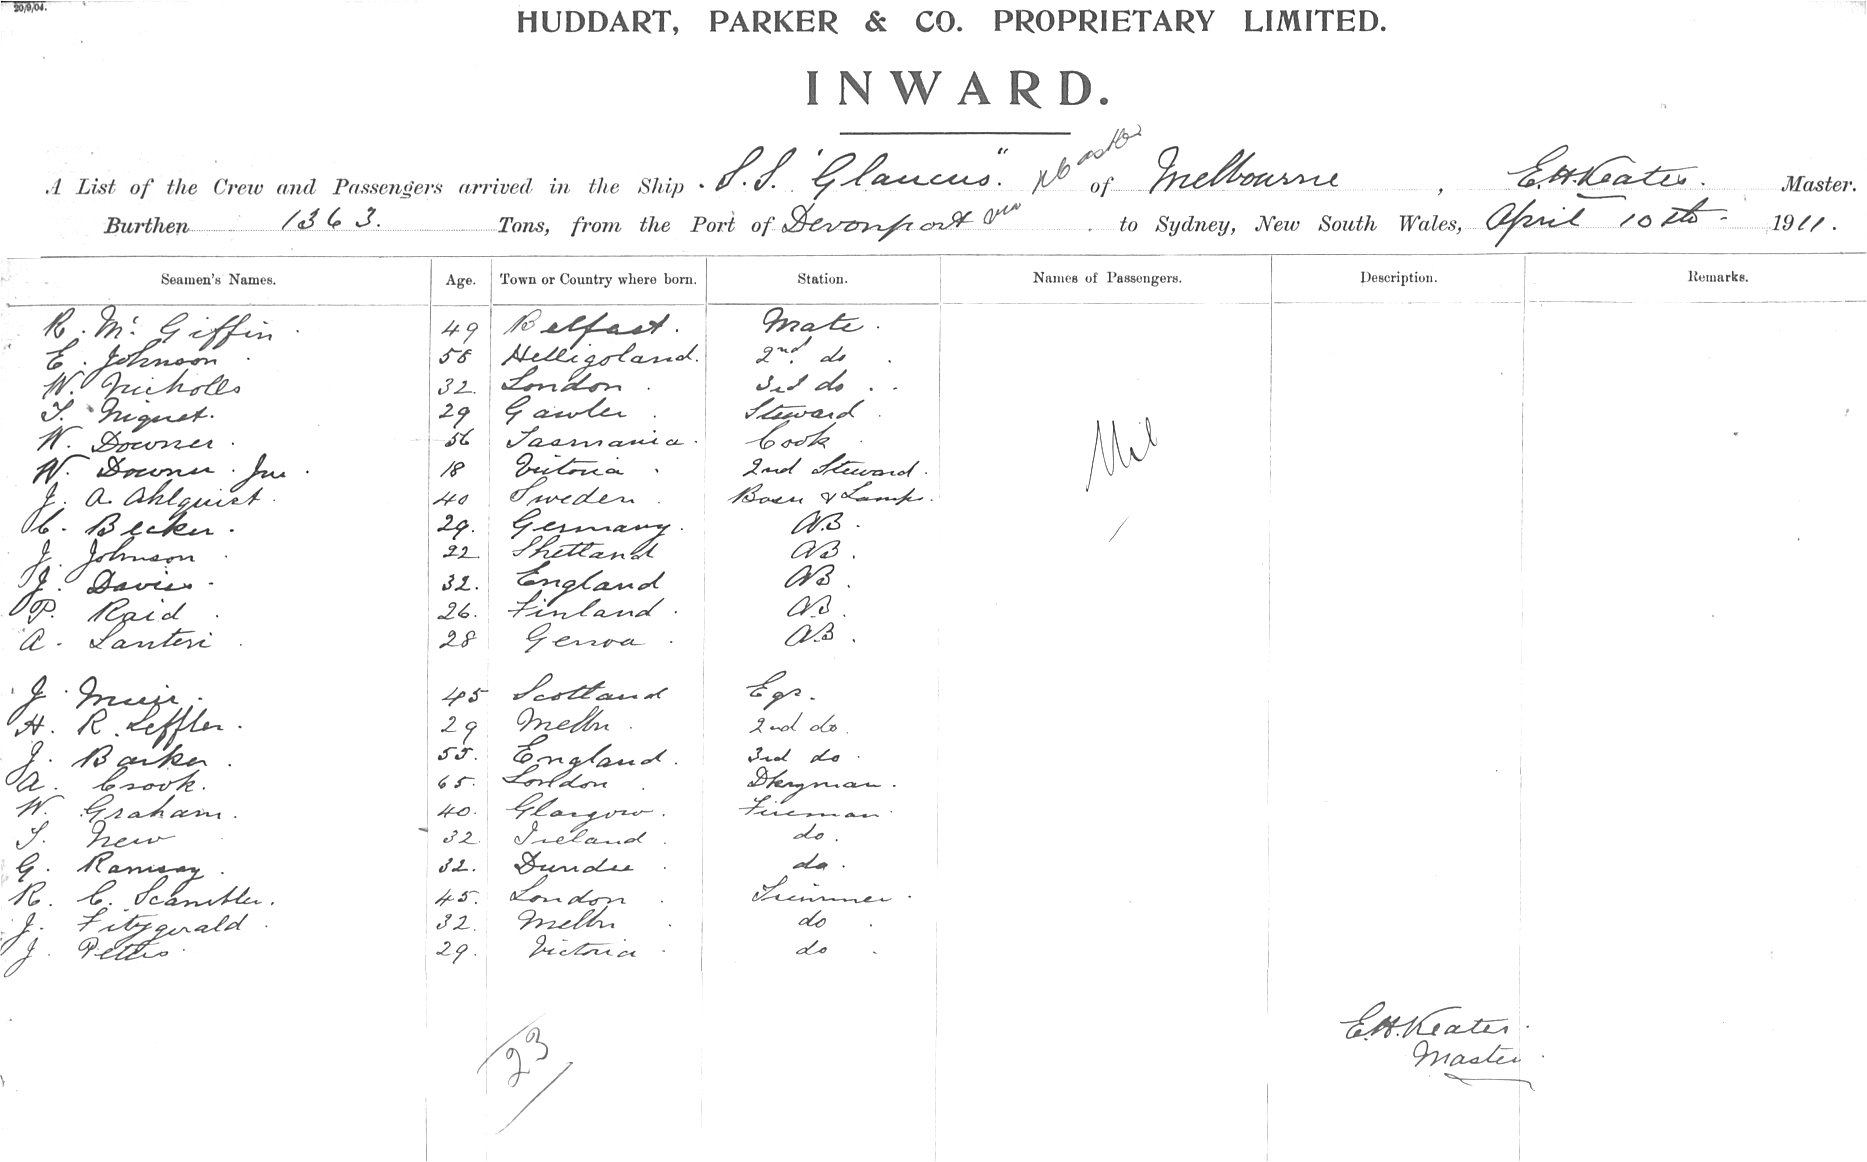 20/9/04.
HUDDART, PARKER & CO. PROPRIETARY LIMITED.
INWARD.
A List of the Crew and Passengers arrived in the Ship S.S. "Glaucus" of Melbourne, E.H. Keates. Master.
Burthen 1363. Tons, from the Port of Devonport via N'castle to Sydney, New South Wales, April 10th 1911.
Seamen's Names. Age. Town or Country where born. Station. Names of Passengers. Description. Remarks.
R. Mc Giffin 49 Belfast. Mate.
E. Johnson 58 Helligoland. 2nd do
W. Nicholls 32 London 3rd do
T. Niquet. 29 Gawler Steward
W. Downer 56 Tasmania. Cook
W. Downer Jnr 18 Victoria 2nd Steward.
J. A. Ahlquist 40 Sweden Bosn & Lamps.
C. Becker. 29. Germany. AB.
J. Johnson 22 Shetland AB.
J. Davies 32. England AB
P. Raid 26. Finland AB
A. Lanteri 28 Genoa AB
Nil
J. Muir 45 Scotland Egr.
H. R. Leffler. 29 Melbn 2nd do.
J. Barker 55. England. 3rd do
A. Crook. 65. London Dkeyman.
W. Graham. 40. Glasgow. Fireman
T. New 32 Ireland do.
G. Ramsay 32. Dundee do.
R. C. Scambler. 45. London Trimmer
J. Fitzgerald 32. Melbn do
J. Peters 29. Victoria do
23
E.H. Keates.
Master